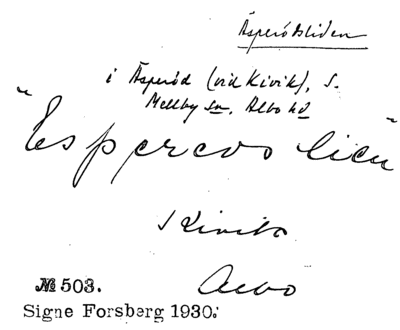 Äsperödsliden
i Äsperöd (vid Kivik), S.
Mellby sn, Albo hd
"Esperevs lien"
Kivik
Albo
№ 503.
Signe Forsberg 1930.